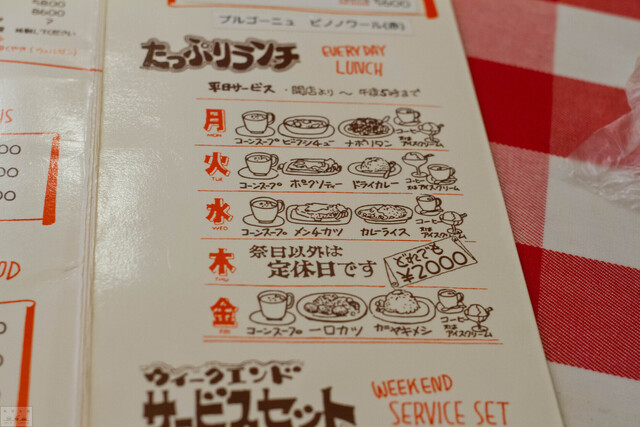 5800
8600
ブルゴーニュ ピノノワール(赤)
5600
たっぷりランチ EVERYDAY LUNCH
平日サービス ・開店より～午後5時まで
月 MON
コーンスープ ビーフシチュー ナポリタン コーヒー または アイスクリーム
火 TUE
コーンスープ ポークソティー ドライカレー コーヒー または アイスクリーム
水 WED
コーンスープ メンチカツ カレーライス コーヒー または アイスクリーム
木 THU
祭日以外は
定休日です
どれでも ¥2000
金 FRI
コーンスープ 一口カツ カニヤキメシ コーヒー または アイスクリーム
ウィークエンド
サービスセット
WEEKEND
SERVICE SET